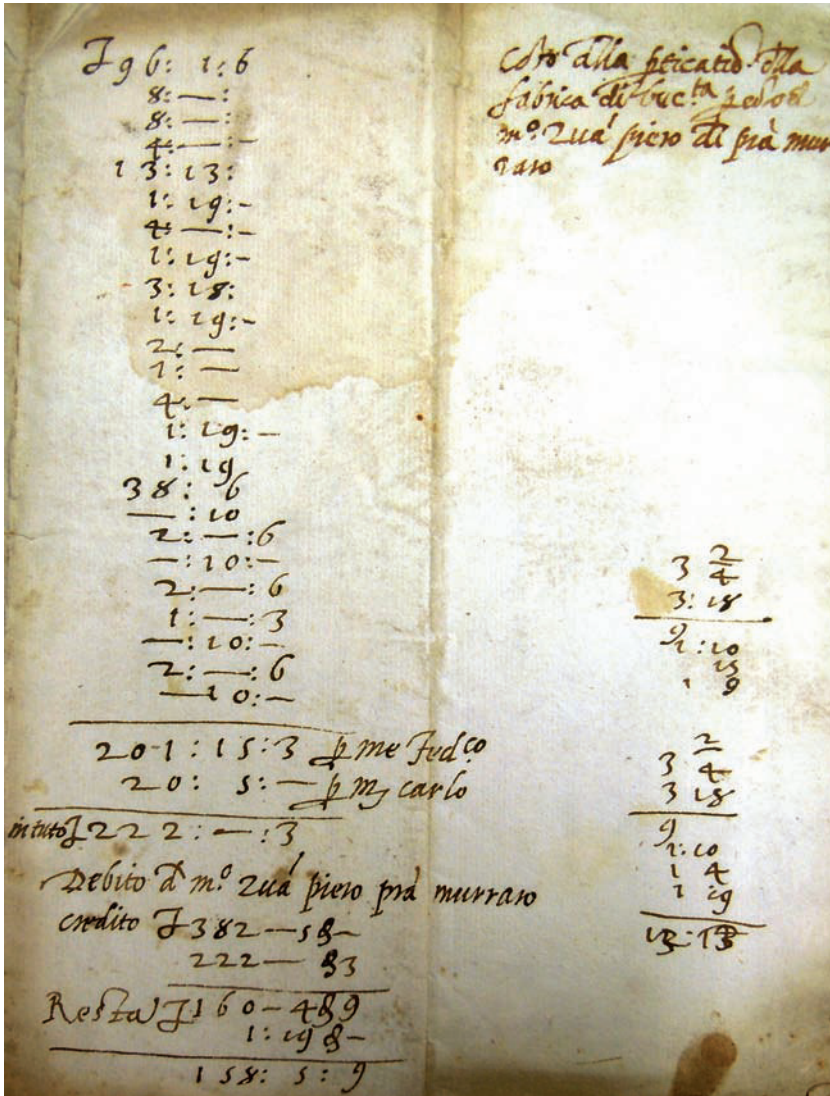 96: 1:6
8: — :
8: — :
4: — : -
13: 13:
1: 19: -
4: — : -
1: 19: -
3: 18:
1: 19: -
2: —
1: —
4: —
1: 19: -
1: 19
38: 6
— : 10
2: — : 6
— : 10: -
2: — : 6
1: — : 3
— : 10: -
2: — : 6
— 10: -
201: 15: 3 p me Fedco
20: 5: — p m carlo
in tuto 222: — : 3
Debito d mo zuá piero prà murraro
credito 382 — 5 -
222 — 3
Resta 160 - 4 9
1: 19 -
158: 5: 9
alla
fabrica di
mo zuá piero di prà mur
raro
2
3 4
3: 18
9
1: 10
15
1 9
2
3 4
3 18
9
1: 10
1 4
1 19
13: 13